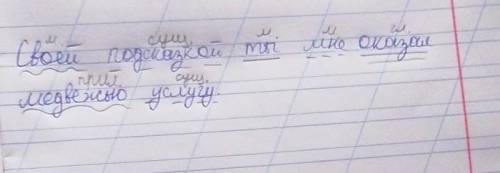 м сущ. м м гл
Своей подсказкой ты мне оказал
прил сущ.
медвежью услугу.